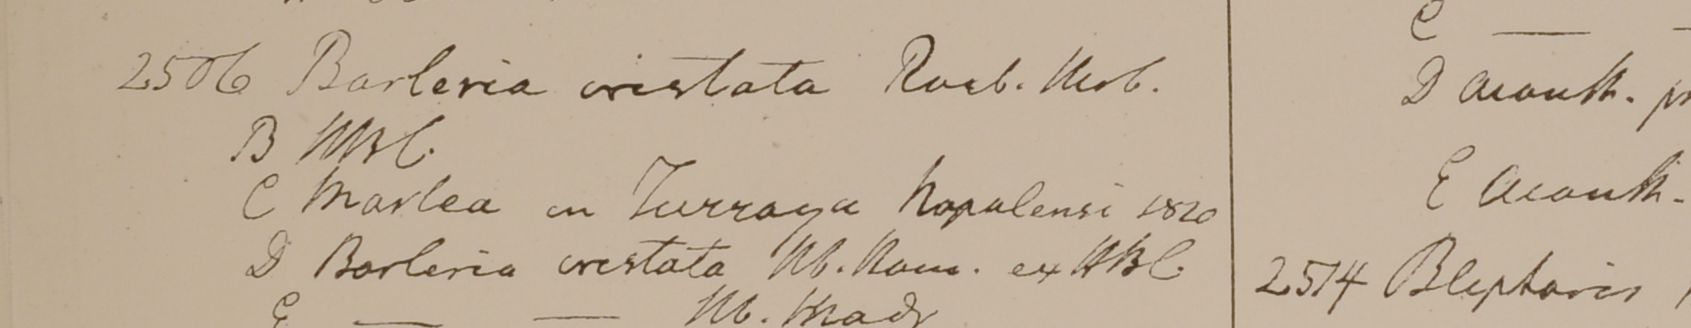 2506 Barleria cristata Roxb. Herb.
B HBC.
C Marlea in Turraya Napalensi 1820
D Barleria cristata Hb. Ham. ex HBC
E — — Hb. Madr
C —
D Acanth.
E Acanth.
2514 Blepharis